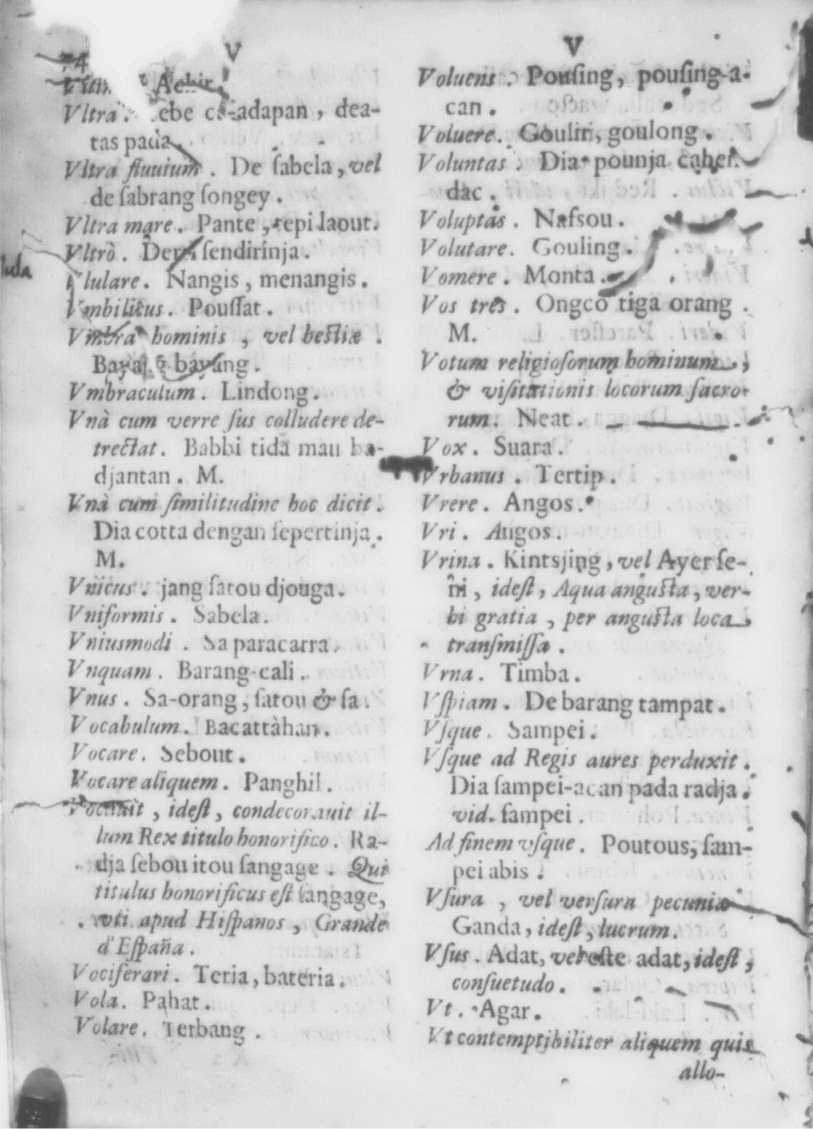 74
V
V
Vltra. ebe adapan, dea-
tas pada
Vltra fluuium. De ſabela, vel
de ſabrang ſongey.
Vltra mare. Pante, tepi laout.
Vltrò. ſendirinja.
Vlulare. Nangis, menangis.
Vmbilicus. Pouſſat.
Vmbra hominis, vel beſtiæ.
bayang.
Vmbraculum. Lindong.
Vnà cum verre ſus colludere de-
trectat. Babbi tida mau ba-
djantan. M.
Vnà cum ſimilitudine hoc dicit.
Dia cotta dengan ſepertinja.
M.
Vnicus. jang ſatou djouga.
Vniformis. Sabela.
Vniusmodi. Sa paracarra.
Vnquam. Barang-cali.
Vnus. Sa-orang, ſatou & ſa.
Vocabulum. Bacattàhan.
Vocare. Sebout.
Vocare aliquem. Panghil.
Vocauit, ideſt, condecorauit il-
lum Rex titulo honorifico. Ra-
dja ſebou itou ſangage. Qui
titulus honorificus eſt ſangage,
vti apud Hiſpanos, Grande
d'Eſpaña.
Vociferari. Teria, bateria.
Vola. Pahat.
Volare. Terbang.
Voluens. Pouſing, pouſing-a-
can.
Voluere. Goulin, goulong.
Voluntas. Dia pounja
dac.
Voluptas. Nafsou.
Volutare. Gouling.
Vomere. Monta.
Vos tres. Ongcò tiga orang.
M.
Votum religioſorum hominum,
& viſitationis locorum ſacro-
rum. Neat.
Vox. Suara.
Vrbanus. Tertip.
Vrere. Angos.
Vri. Angos.
Vrina. Kintsjing, vel Ayer ſe-
ni, ideſt, Aqua anguſta, ver-
bi gratia, per anguſta loca
tranſmiſſa.
Vrna. Timba.
Vſpiam. De barang tampat.
Vſque. Sampei.
Vſque ad Regis aures perduxit.
Dia ſampei-acan pada radja.
vid. ſampei.
Ad finem vſque. Poutous, ſam-
pei abis.
Vſura, vel verſura pecuniæ
Ganda, ideſt, lucrum.
Vſus. Adat, vel eſte adat, ideſt,
conſuetudo.
Vt. Agar.
Vt contemptibiliter aliquem quis
allo-